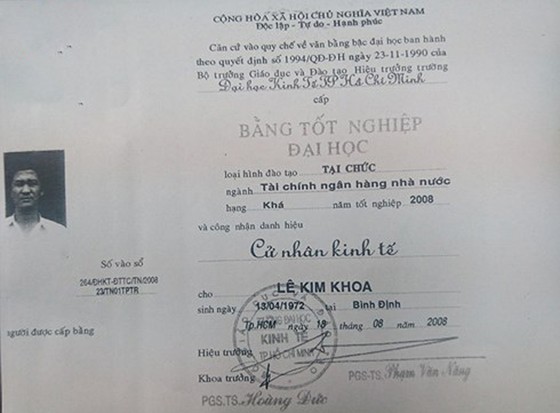 CỘNG HÒA XÃ HỘI CHỦ NGHĨA VIỆT NAM
Độc lập - Tự do - Hạnh phúc
Căn cứ vào quy chế về văn bằng bậc đại học ban hành
theo quyết định số 1994/QĐ-ĐH ngày 23-11-1990 của
Bộ trưởng Giáo dục và Đào tạo Hiệu trưởng trường
Đại học Kinh Tế TP Hồ Chí Minh
cấp
BẰNG TỐT NGHIỆP
ĐẠI HỌC
loại hình đào tạo TẠI CHỨC
ngành Tài chính ngân hàng nhà nước
hạng Khá năm tốt nghiệp 2008
và công nhận danh hiệu
Cử nhân kinh tế
Số vào sổ
264/ĐHKT-ĐTTC/TN/2008
23/TN01TPTR
người được cấp bằng
cho LÊ KIM KHOA
sinh ngày 13/04/1972 tại Bình Định
Tp.HCM ngày 18 tháng 08 năm 2008
Hiệu trưởng
TRƯỜNG ĐẠI HỌC
KINH TẾ
TP. HỒ CHÍ MINH
Khoa trưởng
PGS-TS. Phạm Văn Năng
PGS.TS. Hoàng Đức